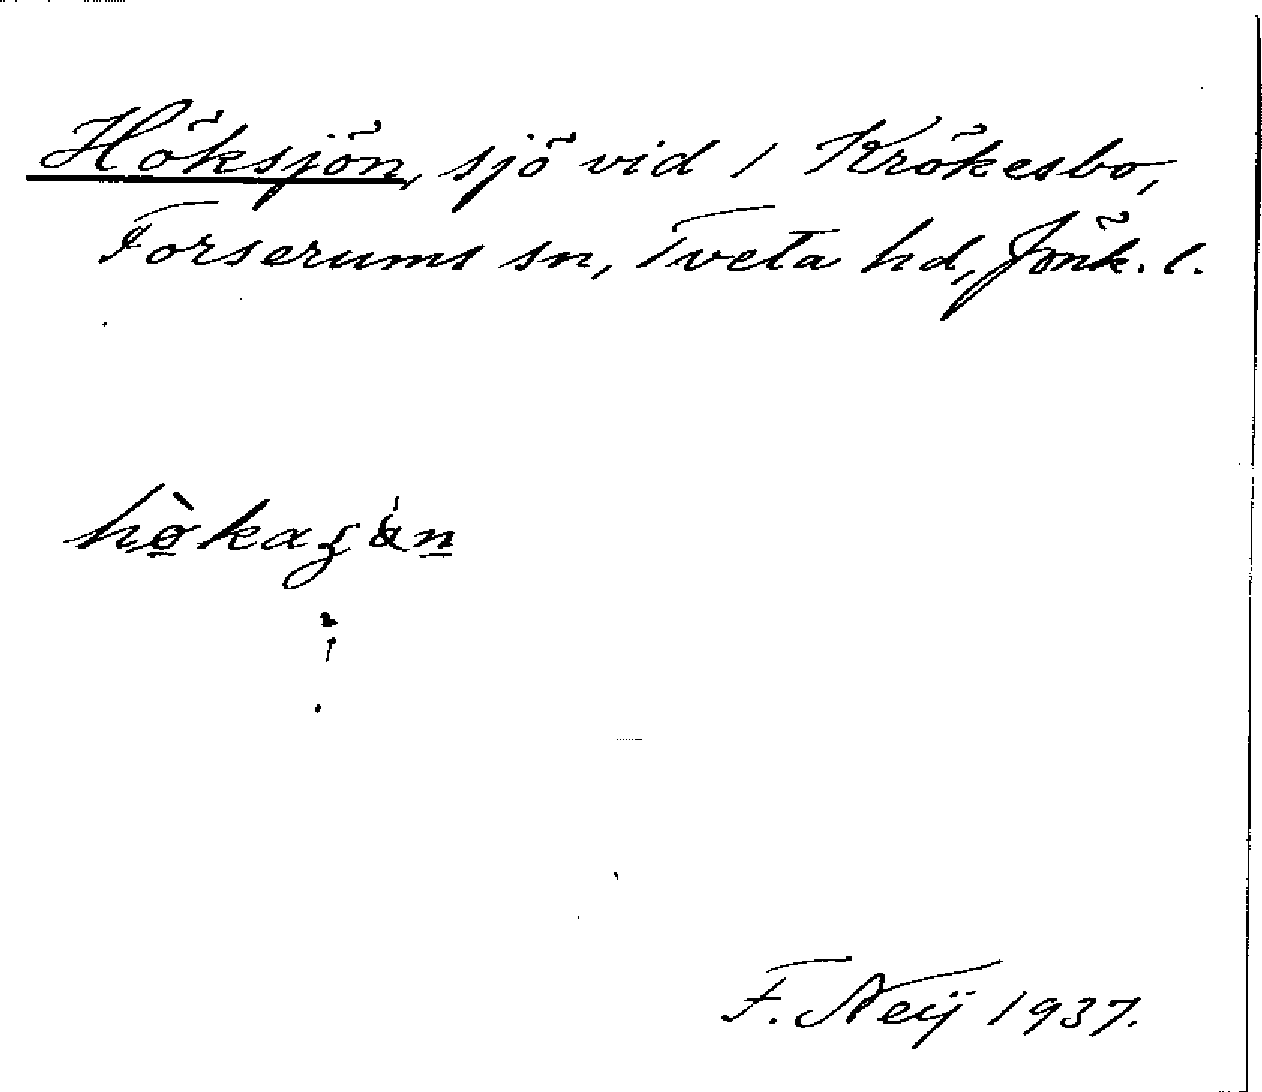 Höksjön, sjö vid 1 Krökesbo,
Forserums sn, Tveta hd, Jönk. l.
F. Neij 1937.